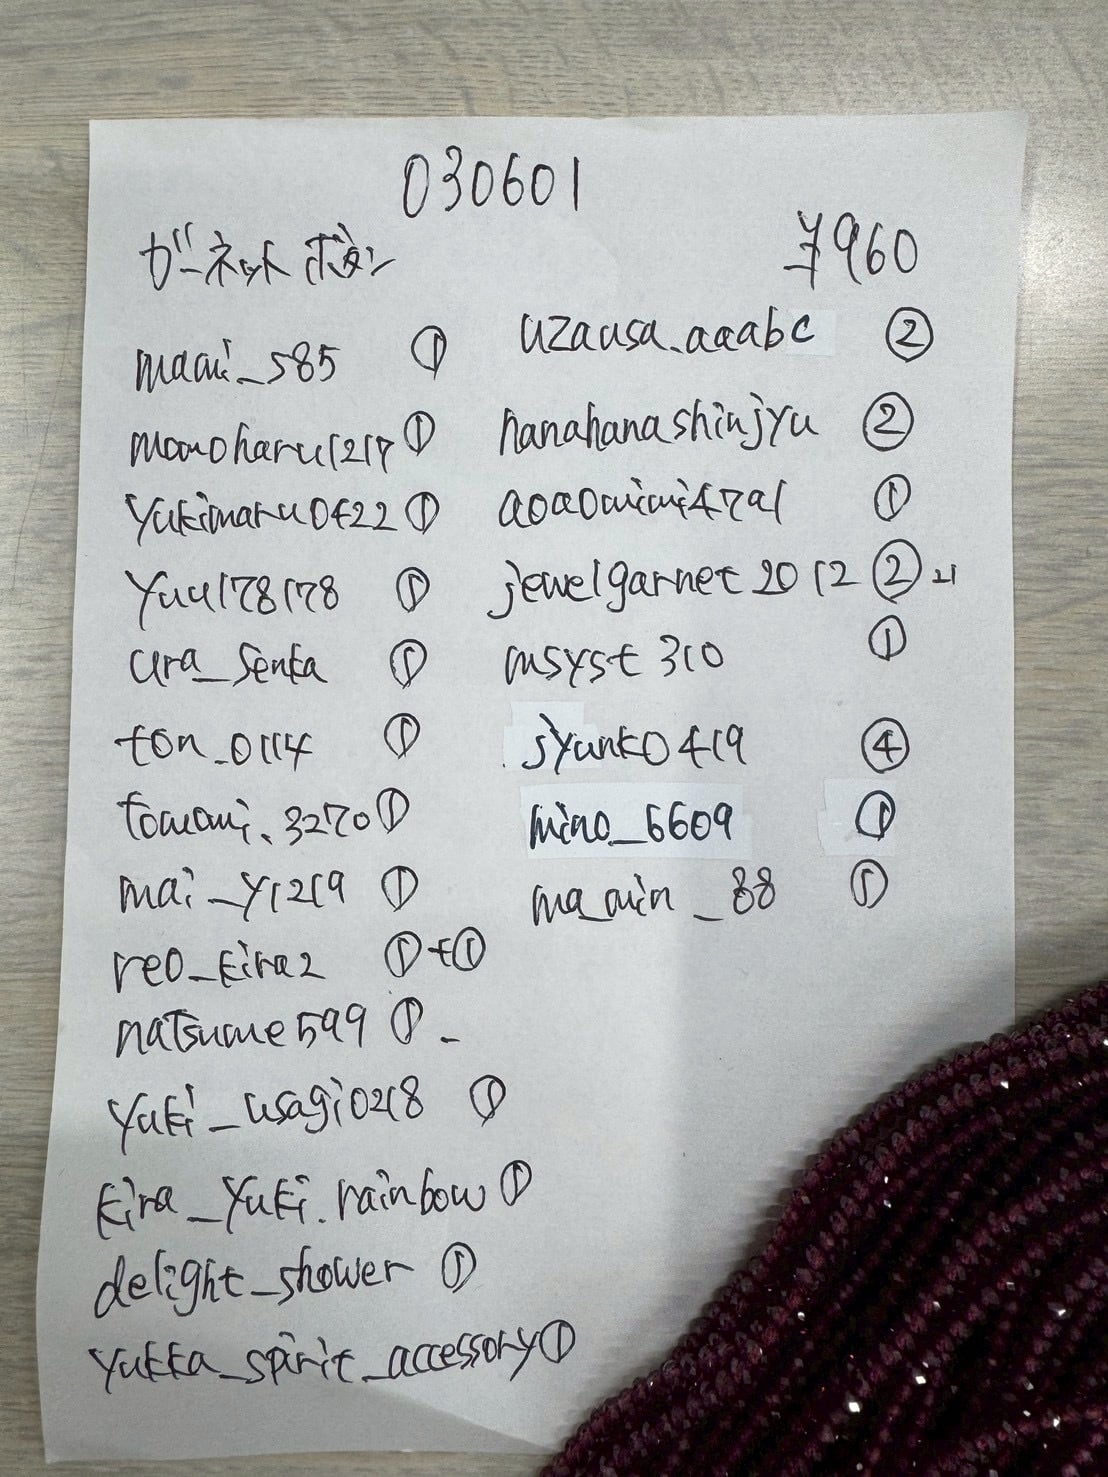 030601
ガーネットボタン
7960
maai_585 ①
momoharu1217 ①
yukimaru0422 ①
yuu178178 ①
ura_senka ①
ton_0114 ①
tomomi.3270 ①
mai_y1219 ①
reo_kira2 ①+①
natsume599 ①-
yuki_usagi0218 ①
kira_yuki.rainbow ①
delight_shower ①
yukka_spirit_accessory ①
uzausa.aaabc ②
hanahanashinjyu ②
aoaomimi4791 ①
jewelgarnet2012 ②
msyst310 ①
jyunko419 ④
mino_6609 ①
ma_min_88 ①